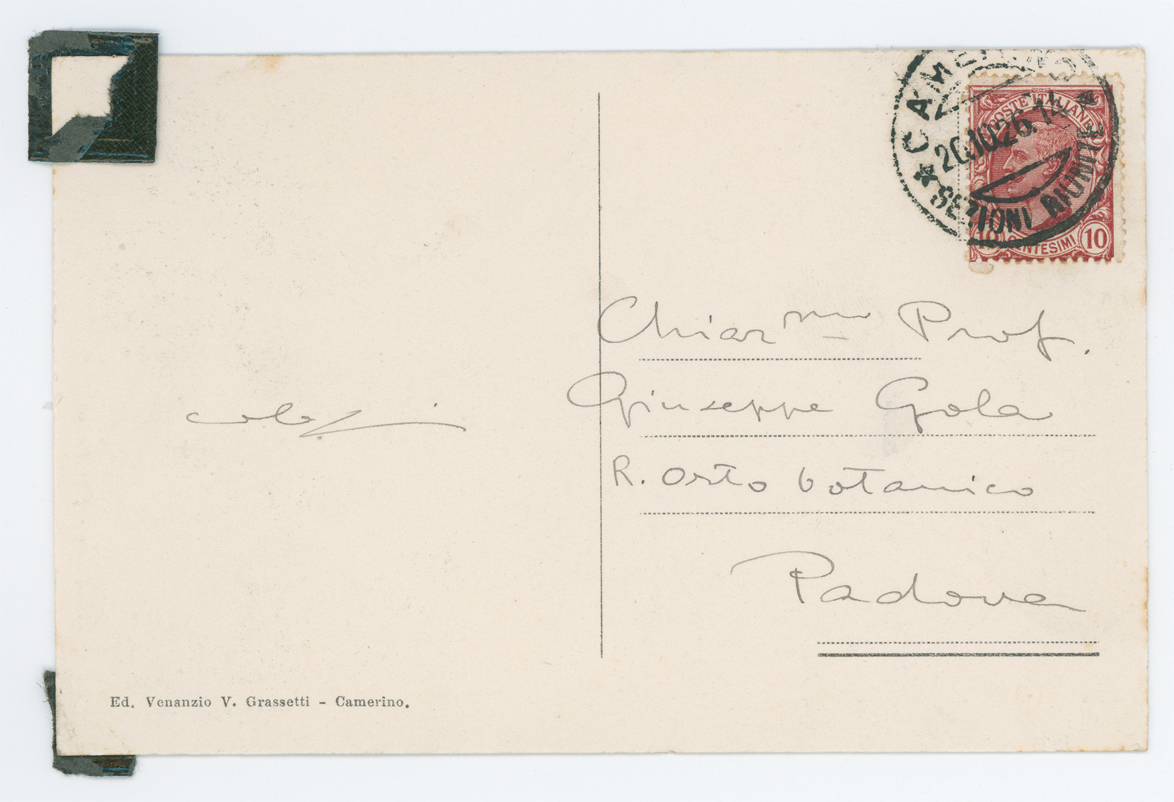 CAMERINO
20.10.26.14
SEZIONI RIUNITE
POSTE ITALIANE
10 CENTESIMI 10
Chiar mo Prof.
Giuseppe Gola
R. Orto botanico
Padova
Ed. Venanzio V. Grassetti - Camerino.